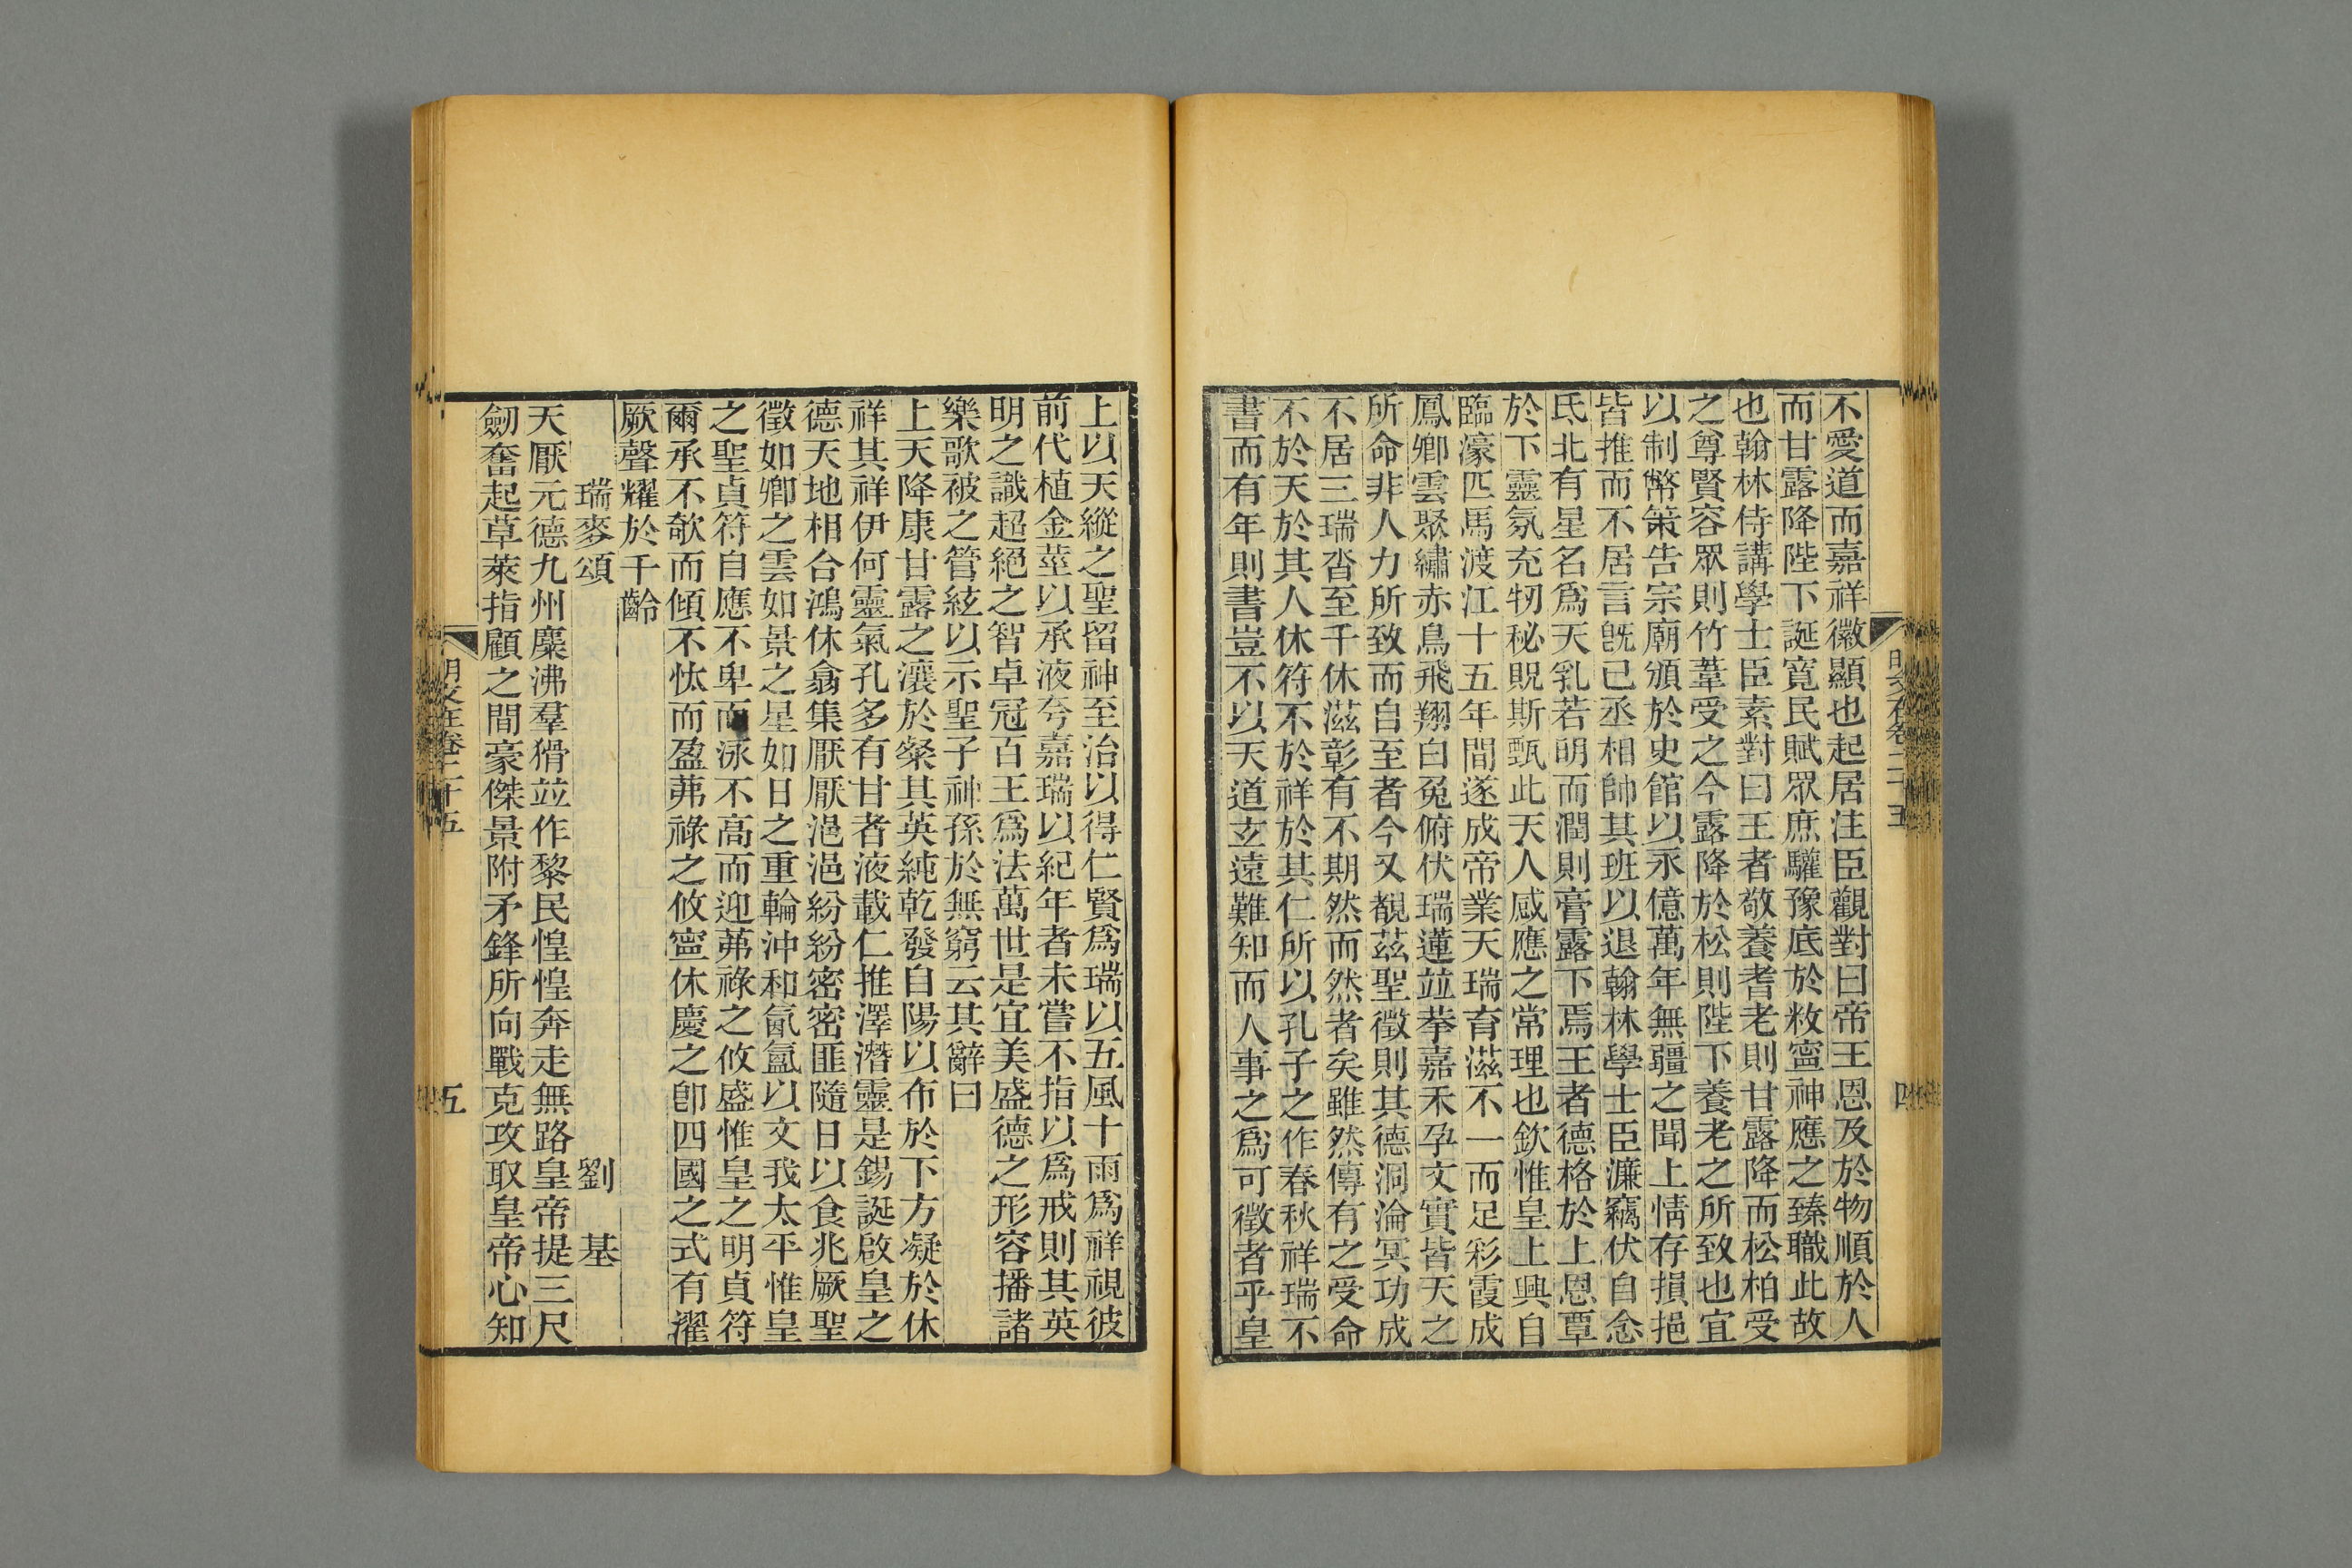 不愛道而嘉祥徽顯也起居注臣觀對曰帝王恩及於物順於人
而甘露降陛下誕寬民賦眾庶驩豫底於敉寧神應之臻職此故
也翰林侍講學士臣素對曰王者敬養耆老則甘露降而松柏受
之尊賢容眾則竹葦受之今露降於松則陛下養老之所致也宜
以制幣策告宗廟頒於史館以永億萬年無疆之聞上情存損挹
皆推而不居言旣已丞相帥其班以退翰林學士臣濂竊伏自念
氐北有星名爲天乳若明而潤則膏露下焉王者德格於上恩覃
於下靈氛充牣秘貺斯甄此天人感應之常理也欽惟皇上興自
臨濠匹馬渡江十五年間遂成帝業天瑞育滋不一而足彩霞成
鳳卿雲聚繡赤烏飛翔白兔俯伏瑞蓮並萼嘉禾孕文實皆天之
所命非人力所致而自至者今又覩茲聖徵則其德洞淪冥功成
不居三瑞沓至千休滋彰有不期然而然者矣雖然傳有之受命
不於天於其人休符不於祥於其仁所以孔子之作春秋祥瑞不
書而有年則書豈不以天道玄遠難知而人事之爲可徵者乎皇
明文在卷二十五
四
上以天縱之聖留神至治以得仁賢爲瑞以五風十雨爲祥視彼
前代植金莖以承液夸嘉瑞以紀年者未嘗不指以爲戒則其英
明之識超絕之智卓冠百王爲法萬世是宜美盛德之形容播諸
樂歌被之管絃以示聖子神孫於無窮云其辭曰
上天降康甘露之瀼於粲其英純乾發自陽以布於下方凝於休
祥其祥伊何靈氣孔多有甘者液載仁推澤潛靈是錫誕啟皇之
德天地相合鴻休翕集厭厭浥浥紛紛密密匪隨日以食兆厥聖
徵如卿之雲如景之星如日之重輪沖和氤氳以文我太平惟皇
之聖貞符自應不卑而泳不高而迎茀祿之攸盛惟皇之明貞符
爾承不欹而傾不忲而盈茀祿之攸寧休慶之卽四國之式有濯
厥聲耀於千齡
瑞麥頌 劉 基
天厭元德九州麋沸羣猾竝作黎民惶惶奔走無路皇帝提三尺
劒奮起草萊指顧之間豪傑景附矛鋒所向戰克攻取皇帝心知
明文在卷二十五
五